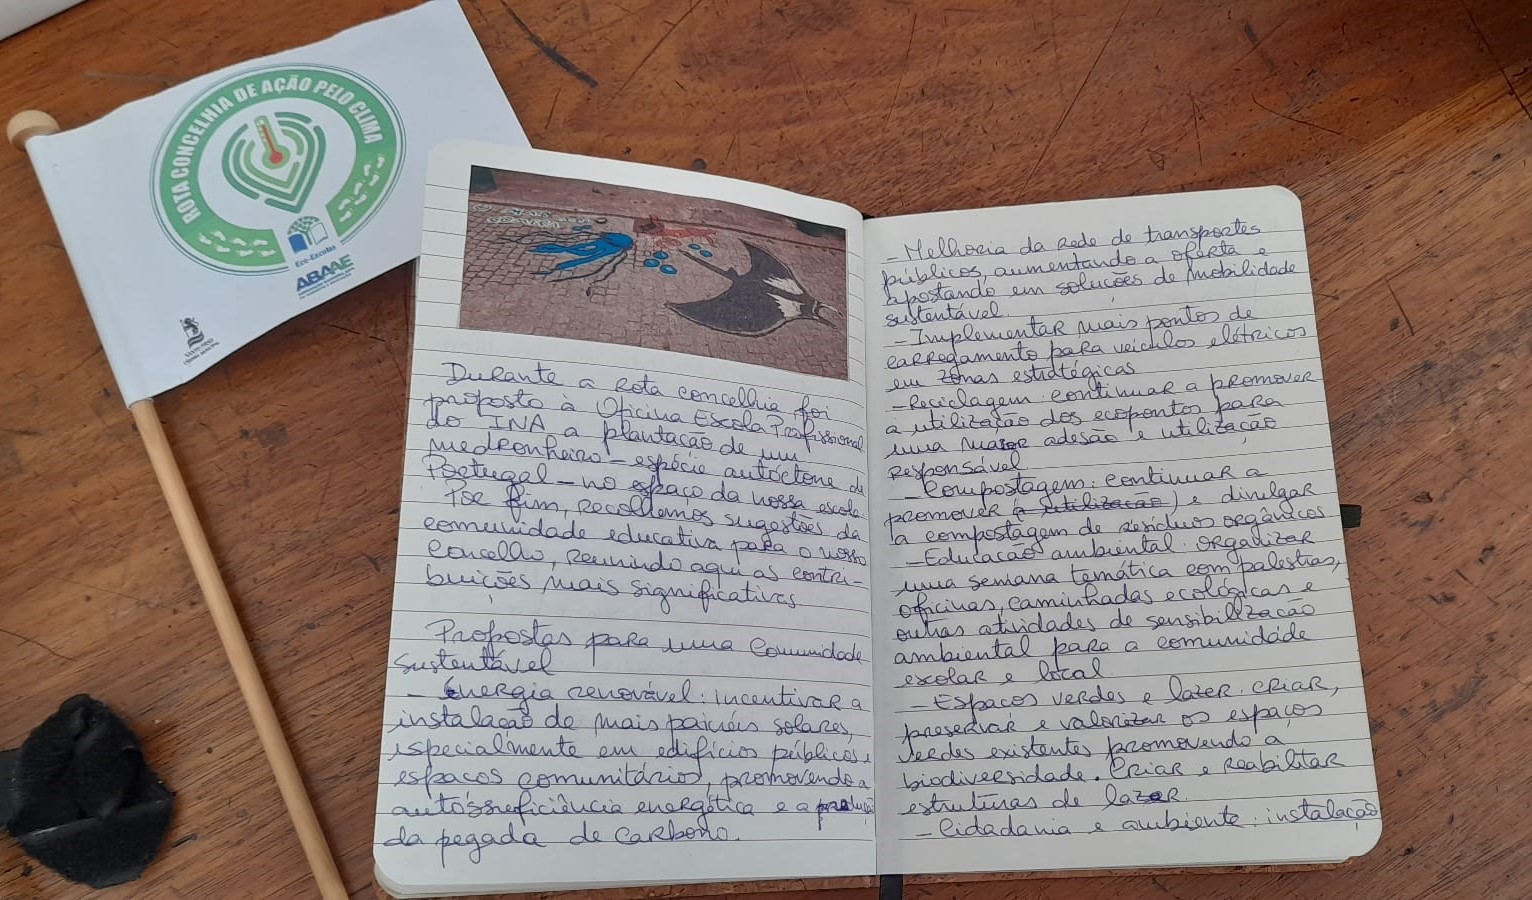 ROTA CONCELHIA DE AÇÃO PELO CLIMA
Eco-Escolas
ABAAE
SANTO TIRSO
CÂMARA MUNICIPAL
Durante a rota concelhia foi
proposto à Oficina Escola Profissional
do INA a plantação de um
medronheiro – espécie autóctone de
Portugal – no espaço da nossa escola.
Por fim, recolhemos sugestões da
comunidade educativa para o nosso
Concelho, reunindo aqui as contri-
buições mais significativas
Propostas para uma Comunidade
sustentável
– Energia renovável: incentivar a
instalação de mais painéis solares,
especialmente em edifícios públicos e
espaços comunitários, promovendo a
energética e a
da pegada de carbono.
– Melhoria da rede de transportes
públicos, aumentando a oferta e
apostando em soluções de mobilidade
sustentável.
– Implementar mais pontos de
carregamento para veiculos elétricos
em zonas estratégicas
– Reciclagem: continuar a promover
a utilização dos ecopontos para
uma maior adesão e utilização
responsável
– Compostagem: continuar a
promover (a utilização) e divulgar
a compostagem de resíduos orgânicos
– Educação ambiental: organizar
uma semana temática com palestras,
oficinas, caminhadas ecológicas e
outras atividades de sensibilização
ambiental para a comunidade
escolar e local
– Espaços verdes e lazer: criar,
preservar e valorizar os espaços
verdes existentes promovendo a
biodiversidade. Criar e reabilitar
estruturas de lazer.
– Cidadania e ambiente: instalação